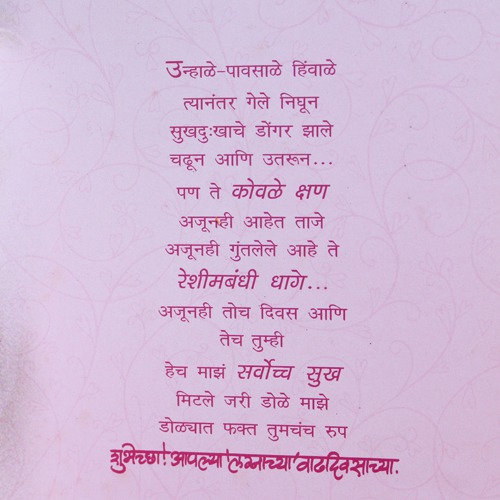 उन्हाळे-पावसाळे हिंवाळे
त्यानंतर गेले निघून
सुखदुःखाचे डोंगर झाले
चढून आणि उतरून...
पण ते कोवळे क्षण
अजूनही आहेत ताजे
अजूनही गुंतलेले आहे ते
रेशीमबंधी धागे...
अजूनही तोच दिवस आणि
तेच तुम्ही
हेच माझं सर्वोच्च सुख
मिटले जरी डोळे माझे
डोळ्यात फक्त तुमचंच रुप
शुभेच्छा! आपल्या लग्नाच्या वाढदिवसाच्या.